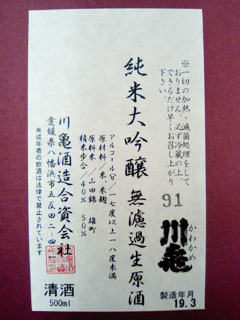 ※一切の加熱、滅菌処理をして
おりません。必ず冷蔵の上
できるだけ早くお召し上がり
下さい。
91
かわかめ
川亀
製造年月
19.3
純米大吟醸 無濾過生原酒
アルコール分/一七度以上一八度未満
原材料/米・米麹
原料米/山田錦 雄町
精米歩合/40% 50%
川亀酒造合資会社
愛媛県八幡浜市五反田二-四-一
未成年者の飲酒は法律で禁止されています
清酒
500ml